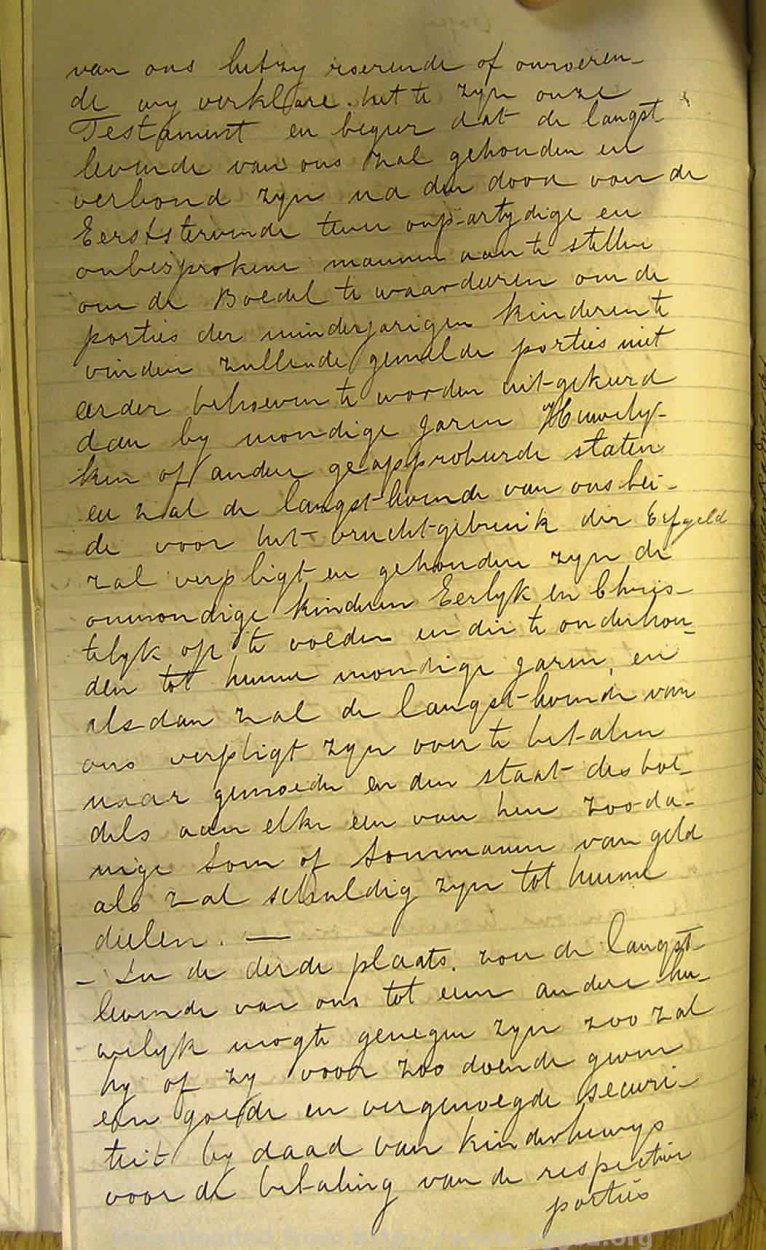 van ons hetzy roerende of onroeren-
de wy verklare het te zyn onze
Testament en begeer dat de langst
levende van ons zal gehouden en
verbond zyn na den dood van de
Eerststervende twee onpartydige en
onbesprokene mannen aan te stellen
om de Boedel te waardeeren om de
porties der minderjarigen kinderen te
vinden zullende gemelde porties niet
eerder behoeven te worden uit-gekeerd
dan by mondige jaren Huwely-
ken of andere geapprobeerde staten
en zal de langst-levende van ons bei-
de voor het vrucht-gebruik der Erfgeld
zal verpligt en gehouden zyn de
onmondige kinderen Eerlyk en Chris-
telyk op te voeden en die te onderhou-
den tot hunne mondige jaren, en
als dan zal de langst-levende van
ons verpligt zyn over te betalen
naar gemoede en den staat des boe-
dels aan elke een van hen zooda-
nige Som of Sommanen van geld
als zal schuldig zyn tot hunne
deelen. —
- In de derde plaats. zou de langst
levende van ons tot eene andere hu-
welyk mogte genegen zyn zoo zal
hy of zy voor zoo doende geven
een goede en vergenoegde securi-
teit by daad van kinderbewys
voor de betaling van de respective
porties